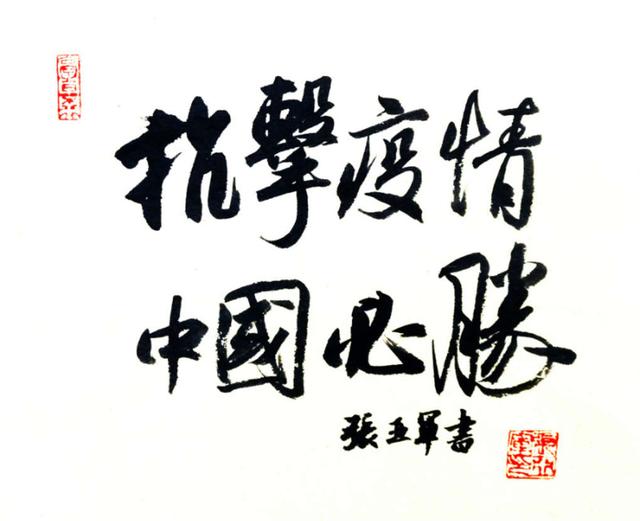 抗擊疫情
中國必勝
張玉軍書